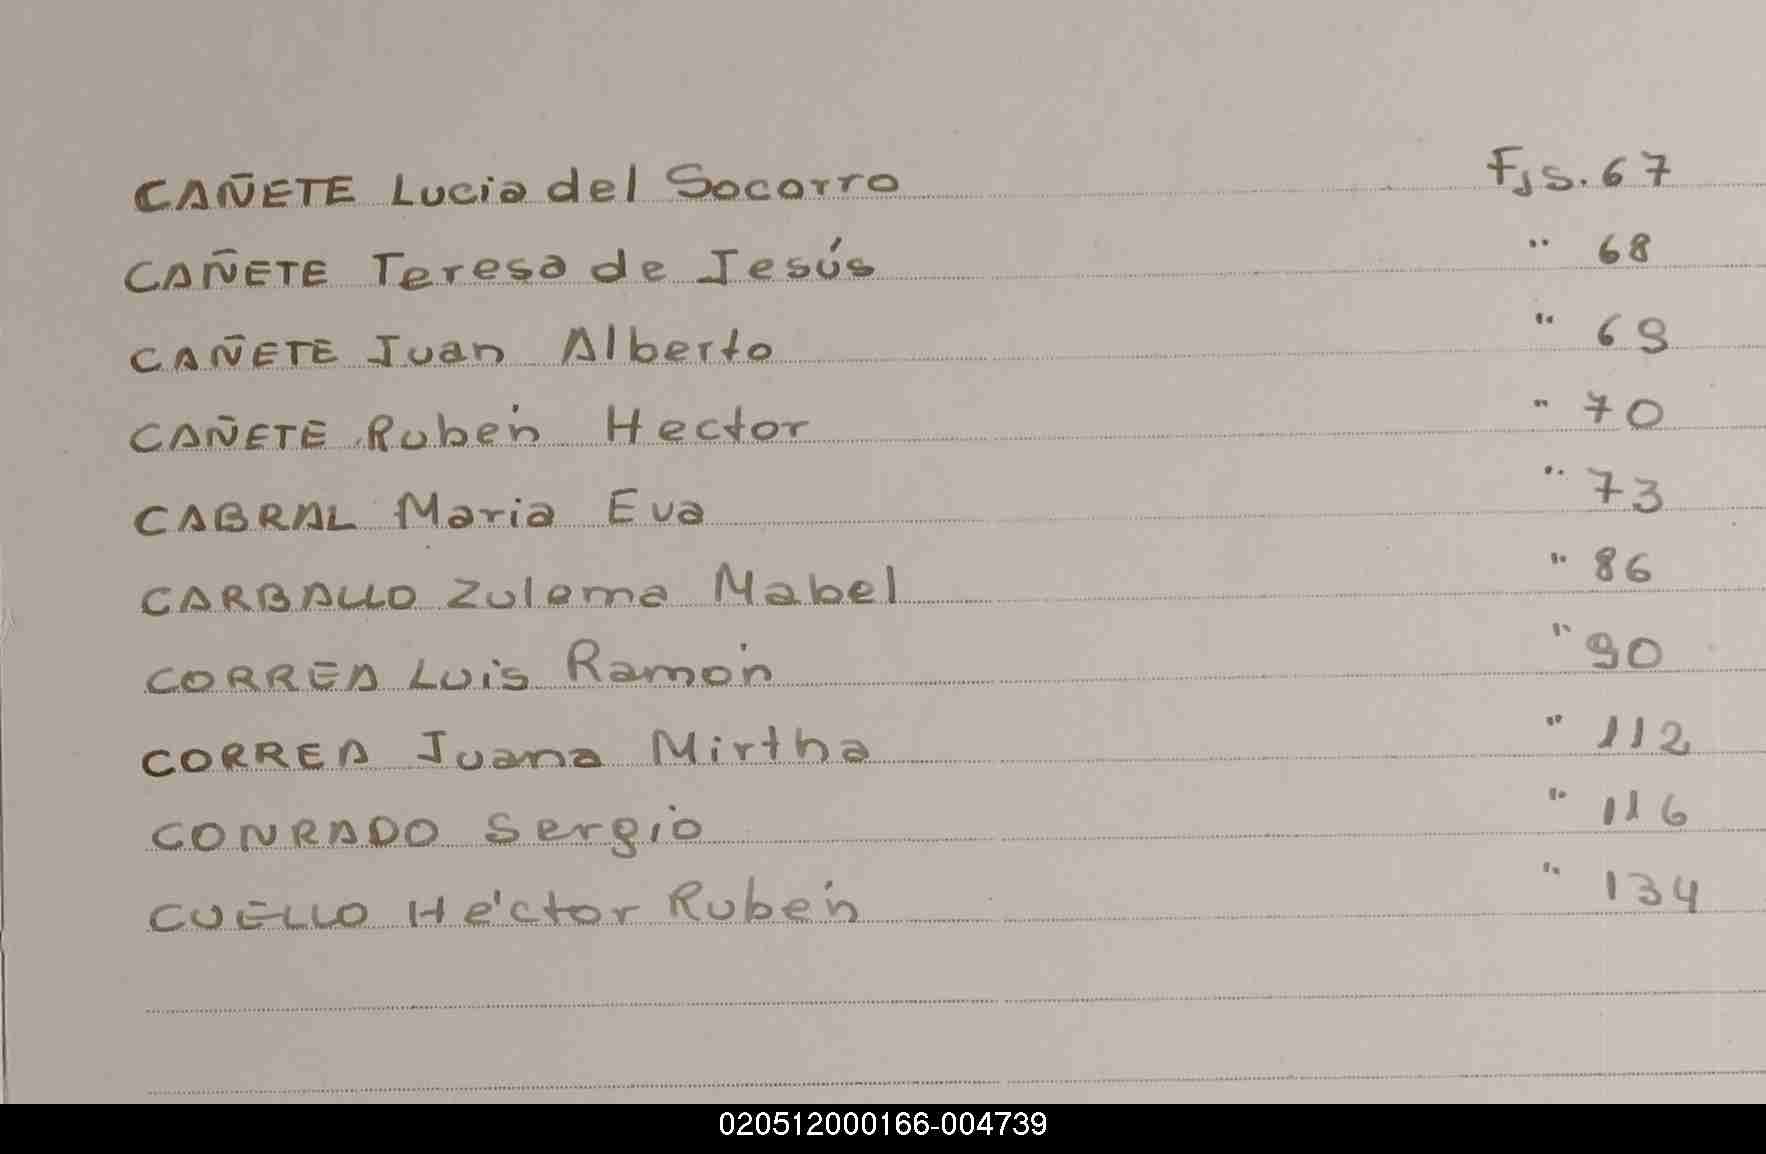 CAÑETE Lucia del Socorro Fjs. 67
CAÑETE Teresa de Jesús " 68
CAÑETE Juan Alberto " 69
CAÑETE Rubén Hector " 70
CABRAL Maria Eva " 73
CARBALLO Zulema Mabel " 86
CORREA Luis Ramón " 90
CORREA Juana Mirtha " 112
CONRADO Sergio " 116
CUELLO Héctor Rubén " 134
020512000166-004739